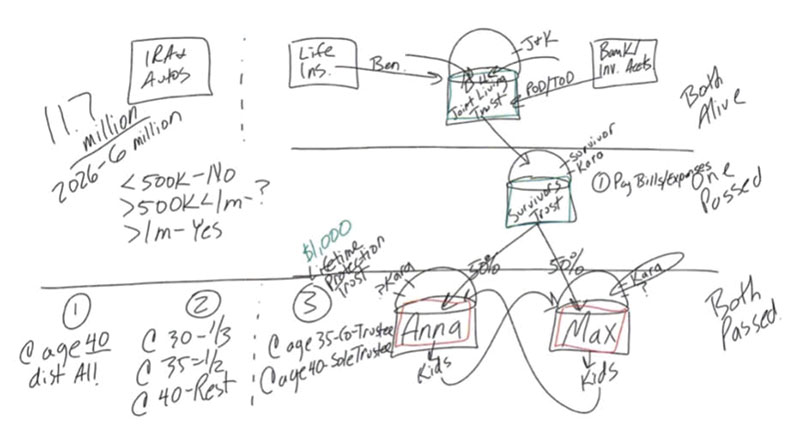 IRA +
Autos
Life
Ins.
Ben.
J+K
Joint Living
Trust
POD/TOD
Bank/
Inv. Accts
Both
Alive
11.7
million
2026-6 million
<500K-No
>500K<1m-?
>1m-Yes
Survivor
Kara
① Pay Bills/Expenses
Survivors
Trust
One
Passed
$1,000
Lifetime
Protection
Trust
50%
50%
? Kara
Kara
?
Both
Passed
①
@ age 40
dist All
②
@ 30-1/3
@ 35=1/2
@ 40-Rest
③
@ age 35-Co-Trustee
@ age 40-Sole Trustee
Anna
Kids
Max
Kids